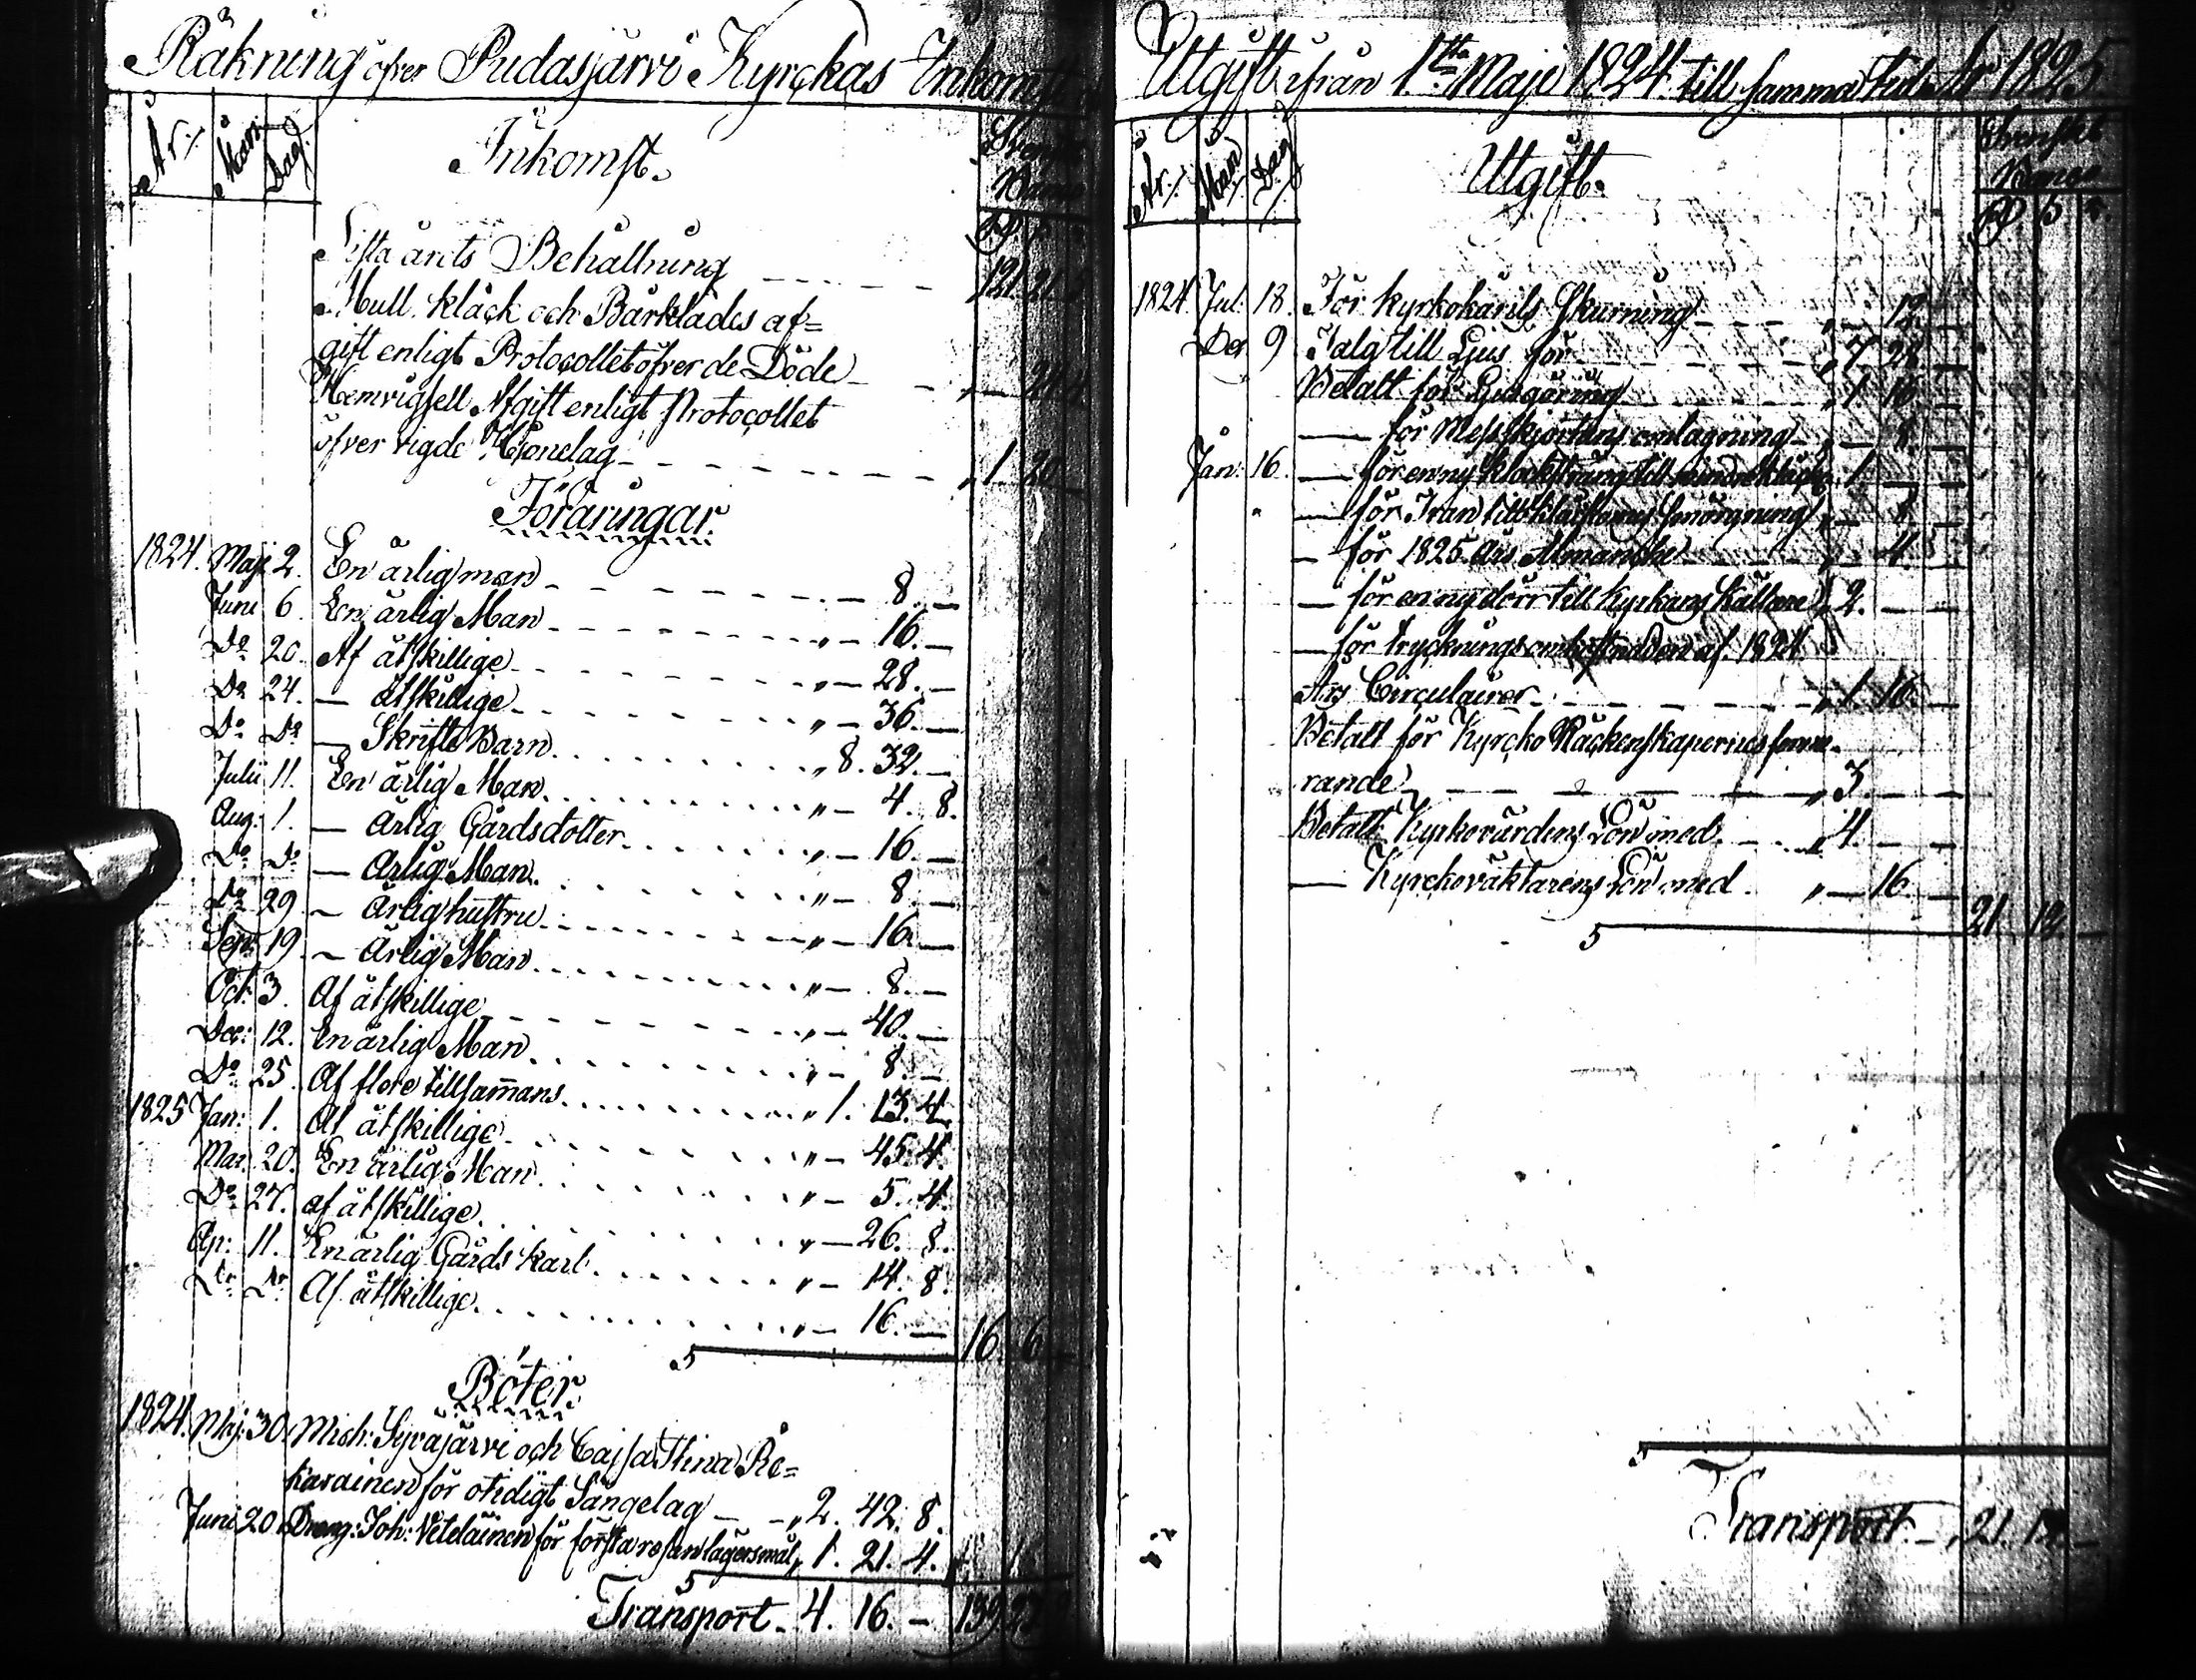 Räkning öfver Pudasjärvi Kyrckas Inkomst
År. Mån. Dag.
Inkomst.
Sista årets Behållning 121 21
Mull, kläck och Bårklädes af=
gift enligt Protocollet öfver de Döde 24
Hemvigsell Afgift enligt Protocollet
öfver vigde Hjonelag 1. 20
Föräringar.
1824. Maji 2. En ärlig man 8.
Juni 6. En ärlig Man 16.
Do 20. Af åtskillige 28.
Do 24. — åtskillige 36.
Do Do — Skrifte Barn 8. 32.
Julii 11. En ärlig Man 4. 8.
Aug: 1. — ärlig Gårdsdotter 16.
Do Do — ärlig Man 8.
Do 29 — ärlig hustru 16.
Sept: 19. — ärlig Man 8.
Oct: 3. Af åtskillige 40.
Dec: 12. En ärlig Man 8.
Do 25. Af flere tillsammans 1. 13. 4.
1825 Jan: 1. Af åtskillige 45. 4.
Mar: 20. En ärlig Man 5. 4.
Do 27. af åtskillige 26. 8.
Ap: 11. En ärlig Gårds karl 14. 8.
Do Do Af åtskillige 16.
16. 6
Böter.
1824. Maj: 30. Mich: Syväjärvi och Cajsa Stina
för otidigt Sängelag 2. 42. 8.
Juni 20. Dreng: Joh: för första resan lägersmål 1. 21. 4.
Transport 4. 16. — 139.
Utgift ifrån 1sta Maji 1824 till samma tid År 1825
År. Mån. Dag.
Utgift.
Svenskt
Banco
1824. Jul. 18. För kyrkokärils Skurning 12.
Dec 9 Talg till Ljus för 7. 28
Betalt för Ljusgöring 1 16
— för Messkjortans omlagning 8.
Jan: 16. — för en ny klocksträng till mindre klockan 1
— för Tran till smörgning 8.
— för 1825 Års Almanache 4.
— för en ny dörr till kyrkans Källare 2.
— för trycknings omkostnaden af 1824
Års Circulairer 1. 16.
Betalt för Kyrcko Räckenskapernes
rande 3.
Betalt Kyrkovärdens Lön med 4.
— Kyrckoväktarens Lön med 16.
21. 12.
Transport 21. 12.